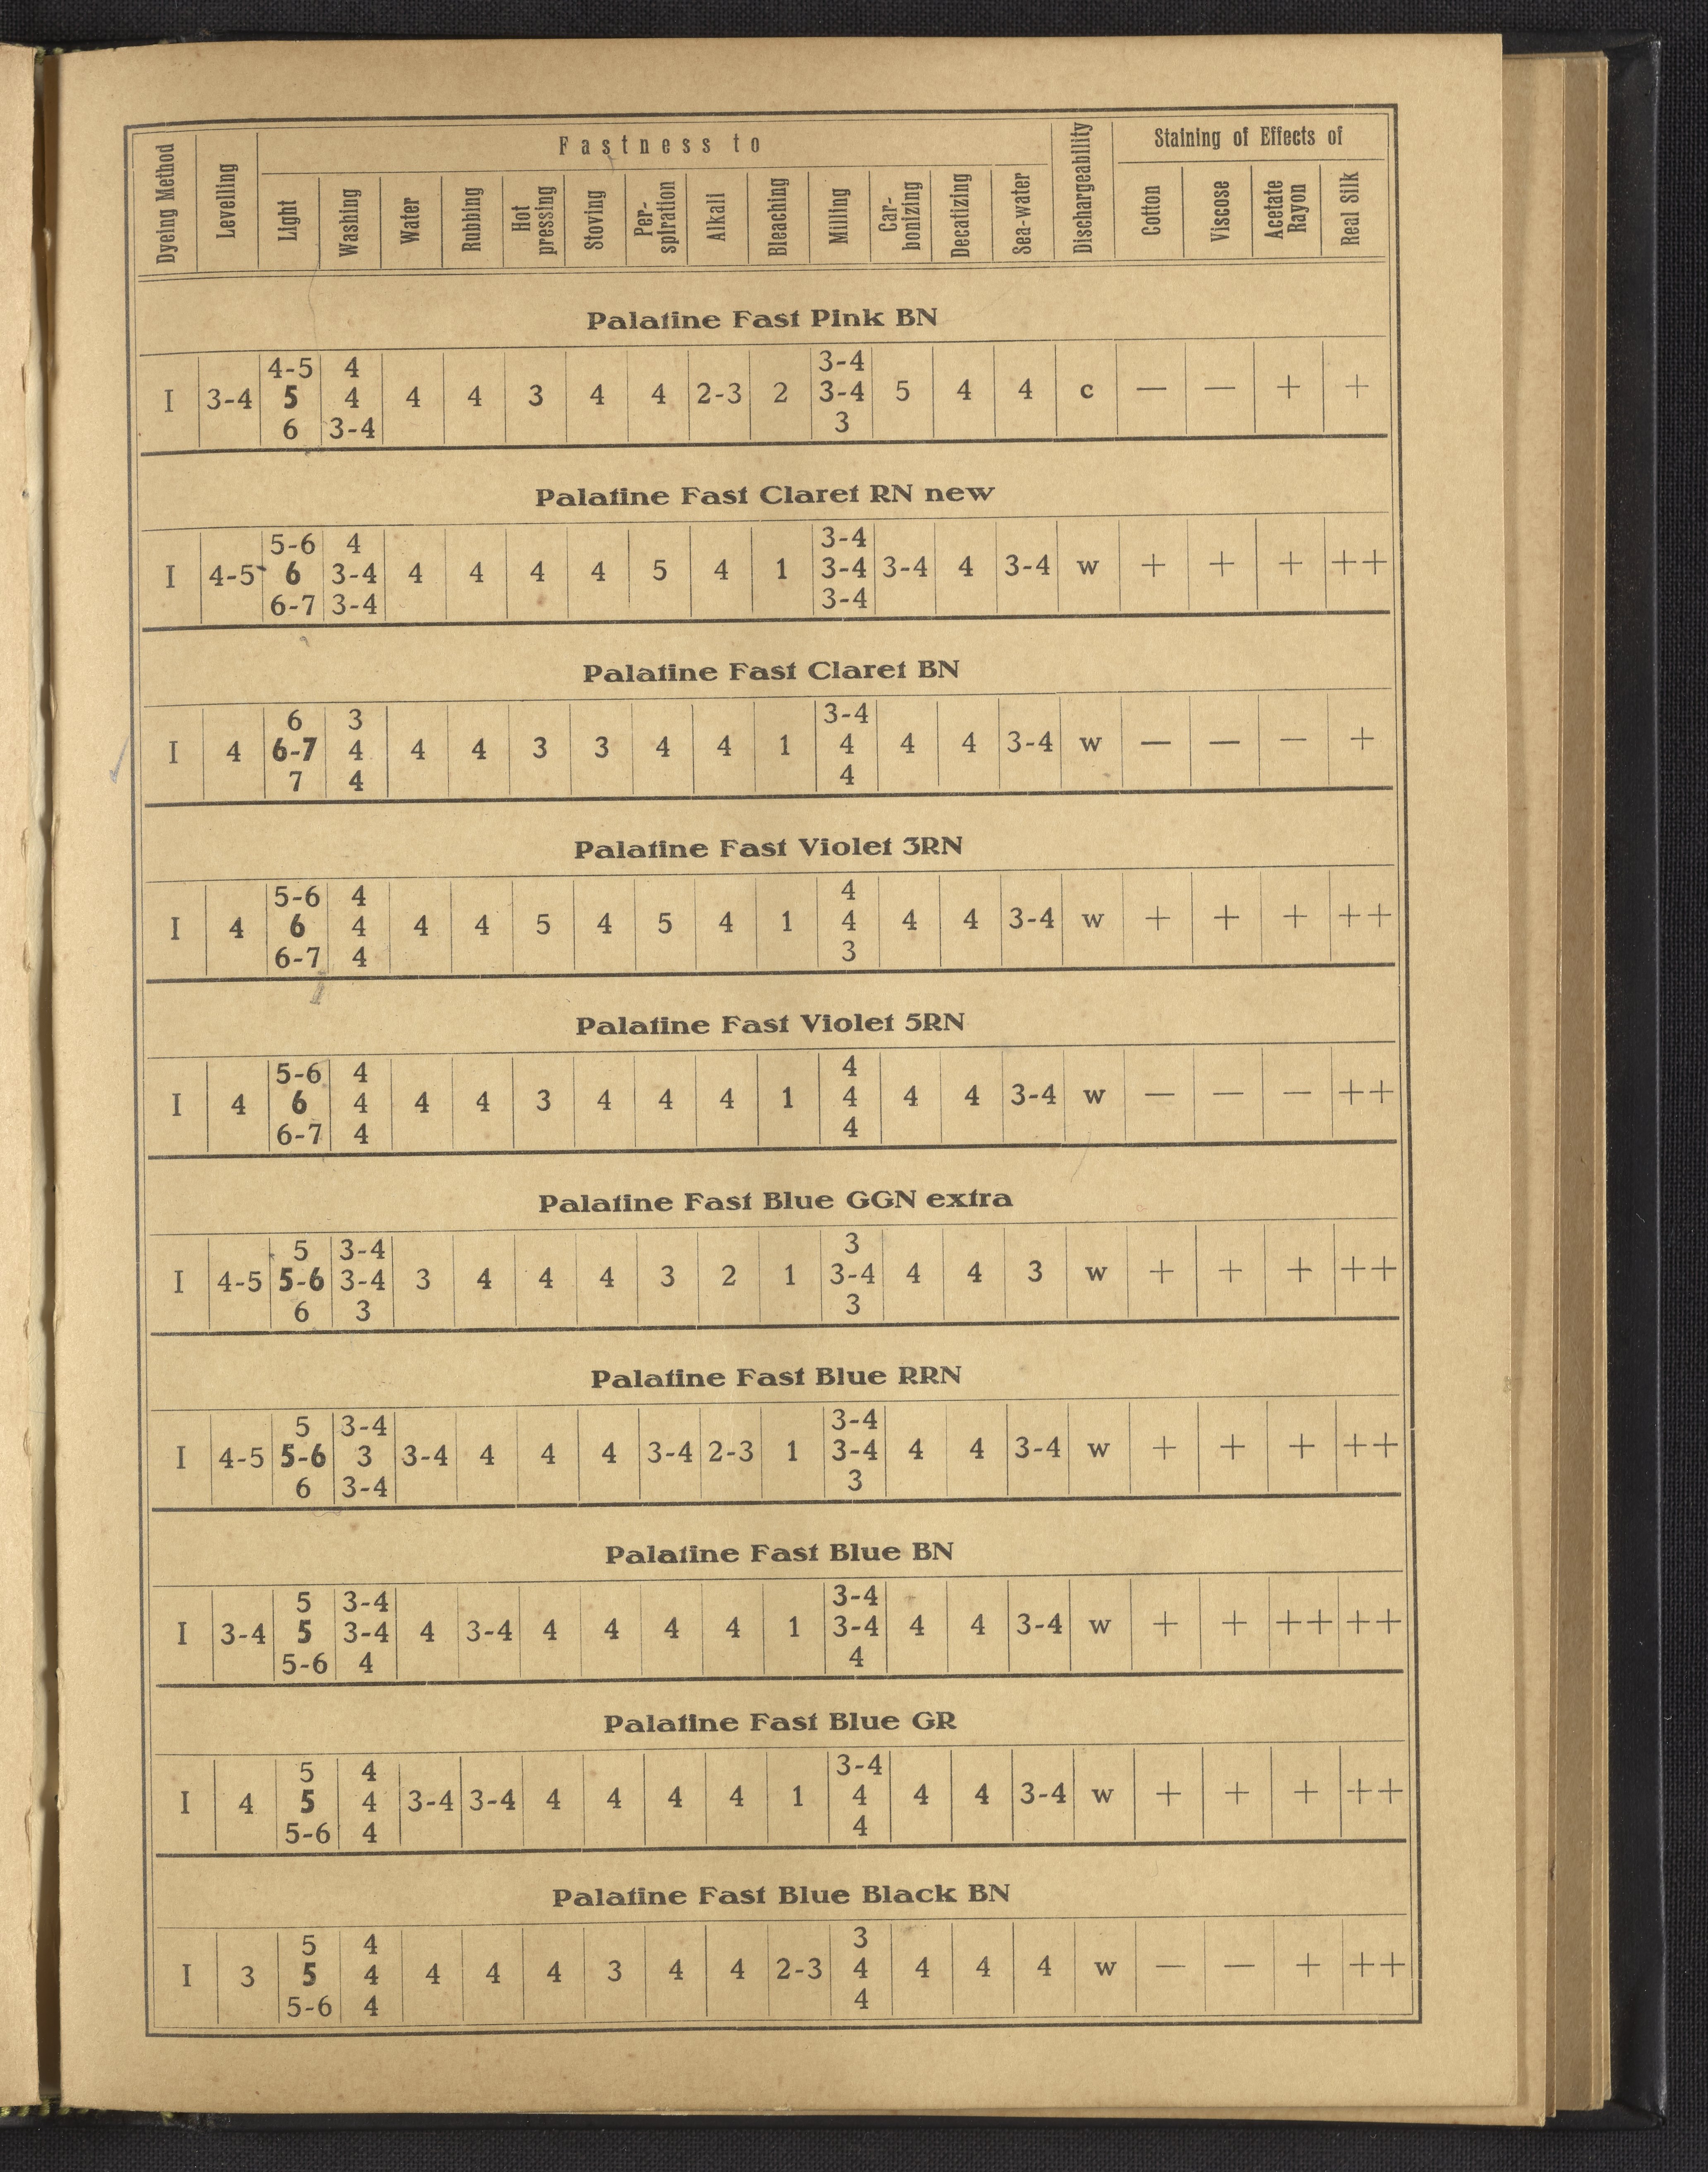 Fastness to
Staining of Effects of
Dyeing Method Levelling Light Washing Water Rubbing Hot pressing Stoving Per-spiration Alkali Bleaching Milling Car-bonizing Decatizing Sea-water Dischargeability Cotton Viscose Acetate Rayon Real Silk
Palatine Fast Pink BN
4-5 4 3-4
I 3-4 5 4 4 4 3 4 4 2-3 2 3-4 5 4 4 c — — + +
6 3-4 3
Palatine Fast Claret RN new
5-6 4 3-4
I 4-5 6 3-4 4 4 4 4 5 4 1 3-4 3-4 4 3-4 w + + + ++
6-7 3-4 3-4
Palatine Fast Claret BN
6 3 3-4
I 4 6-7 4 4 4 3 3 4 4 1 4 4 4 3-4 w — — — +
7 4 4
Palatine Fast Violet 3RN
5-6 4 4
I 4 6 4 4 4 5 4 5 4 1 4 4 4 3-4 w + + + ++
6-7 4 3
Palatine Fast Violet 5RN
5-6 4 4
I 4 6 4 4 4 3 4 4 4 1 4 4 4 3-4 w — — — ++
6-7 4 4
Palatine Fast Blue GGN extra
5 3-4 3
I 4-5 5-6 3-4 3 4 4 4 3 2 1 3-4 4 4 3 w + + + ++
6 3 3
Palatine Fast Blue RRN
5 3-4 3-4
I 4-5 5-6 3 3-4 4 4 4 3-4 2-3 1 3-4 4 4 3-4 w + + + ++
6 3-4 3
Palatine Fast Blue BN
5 3-4 3-4
I 3-4 5 3-4 4 3-4 4 4 4 4 1 3-4 4 4 3-4 w + + ++ ++
5-6 4 4
Palatine Fast Blue GR
5 4 3-4
I 4 5 4 3-4 3-4 4 4 4 4 1 4 4 4 3-4 w + + + ++
5-6 4 4
Palatine Fast Blue Black BN
5 4 3
I 3 5 4 4 4 4 3 4 4 2-3 4 4 4 4 w — — + ++
5-6 4 4